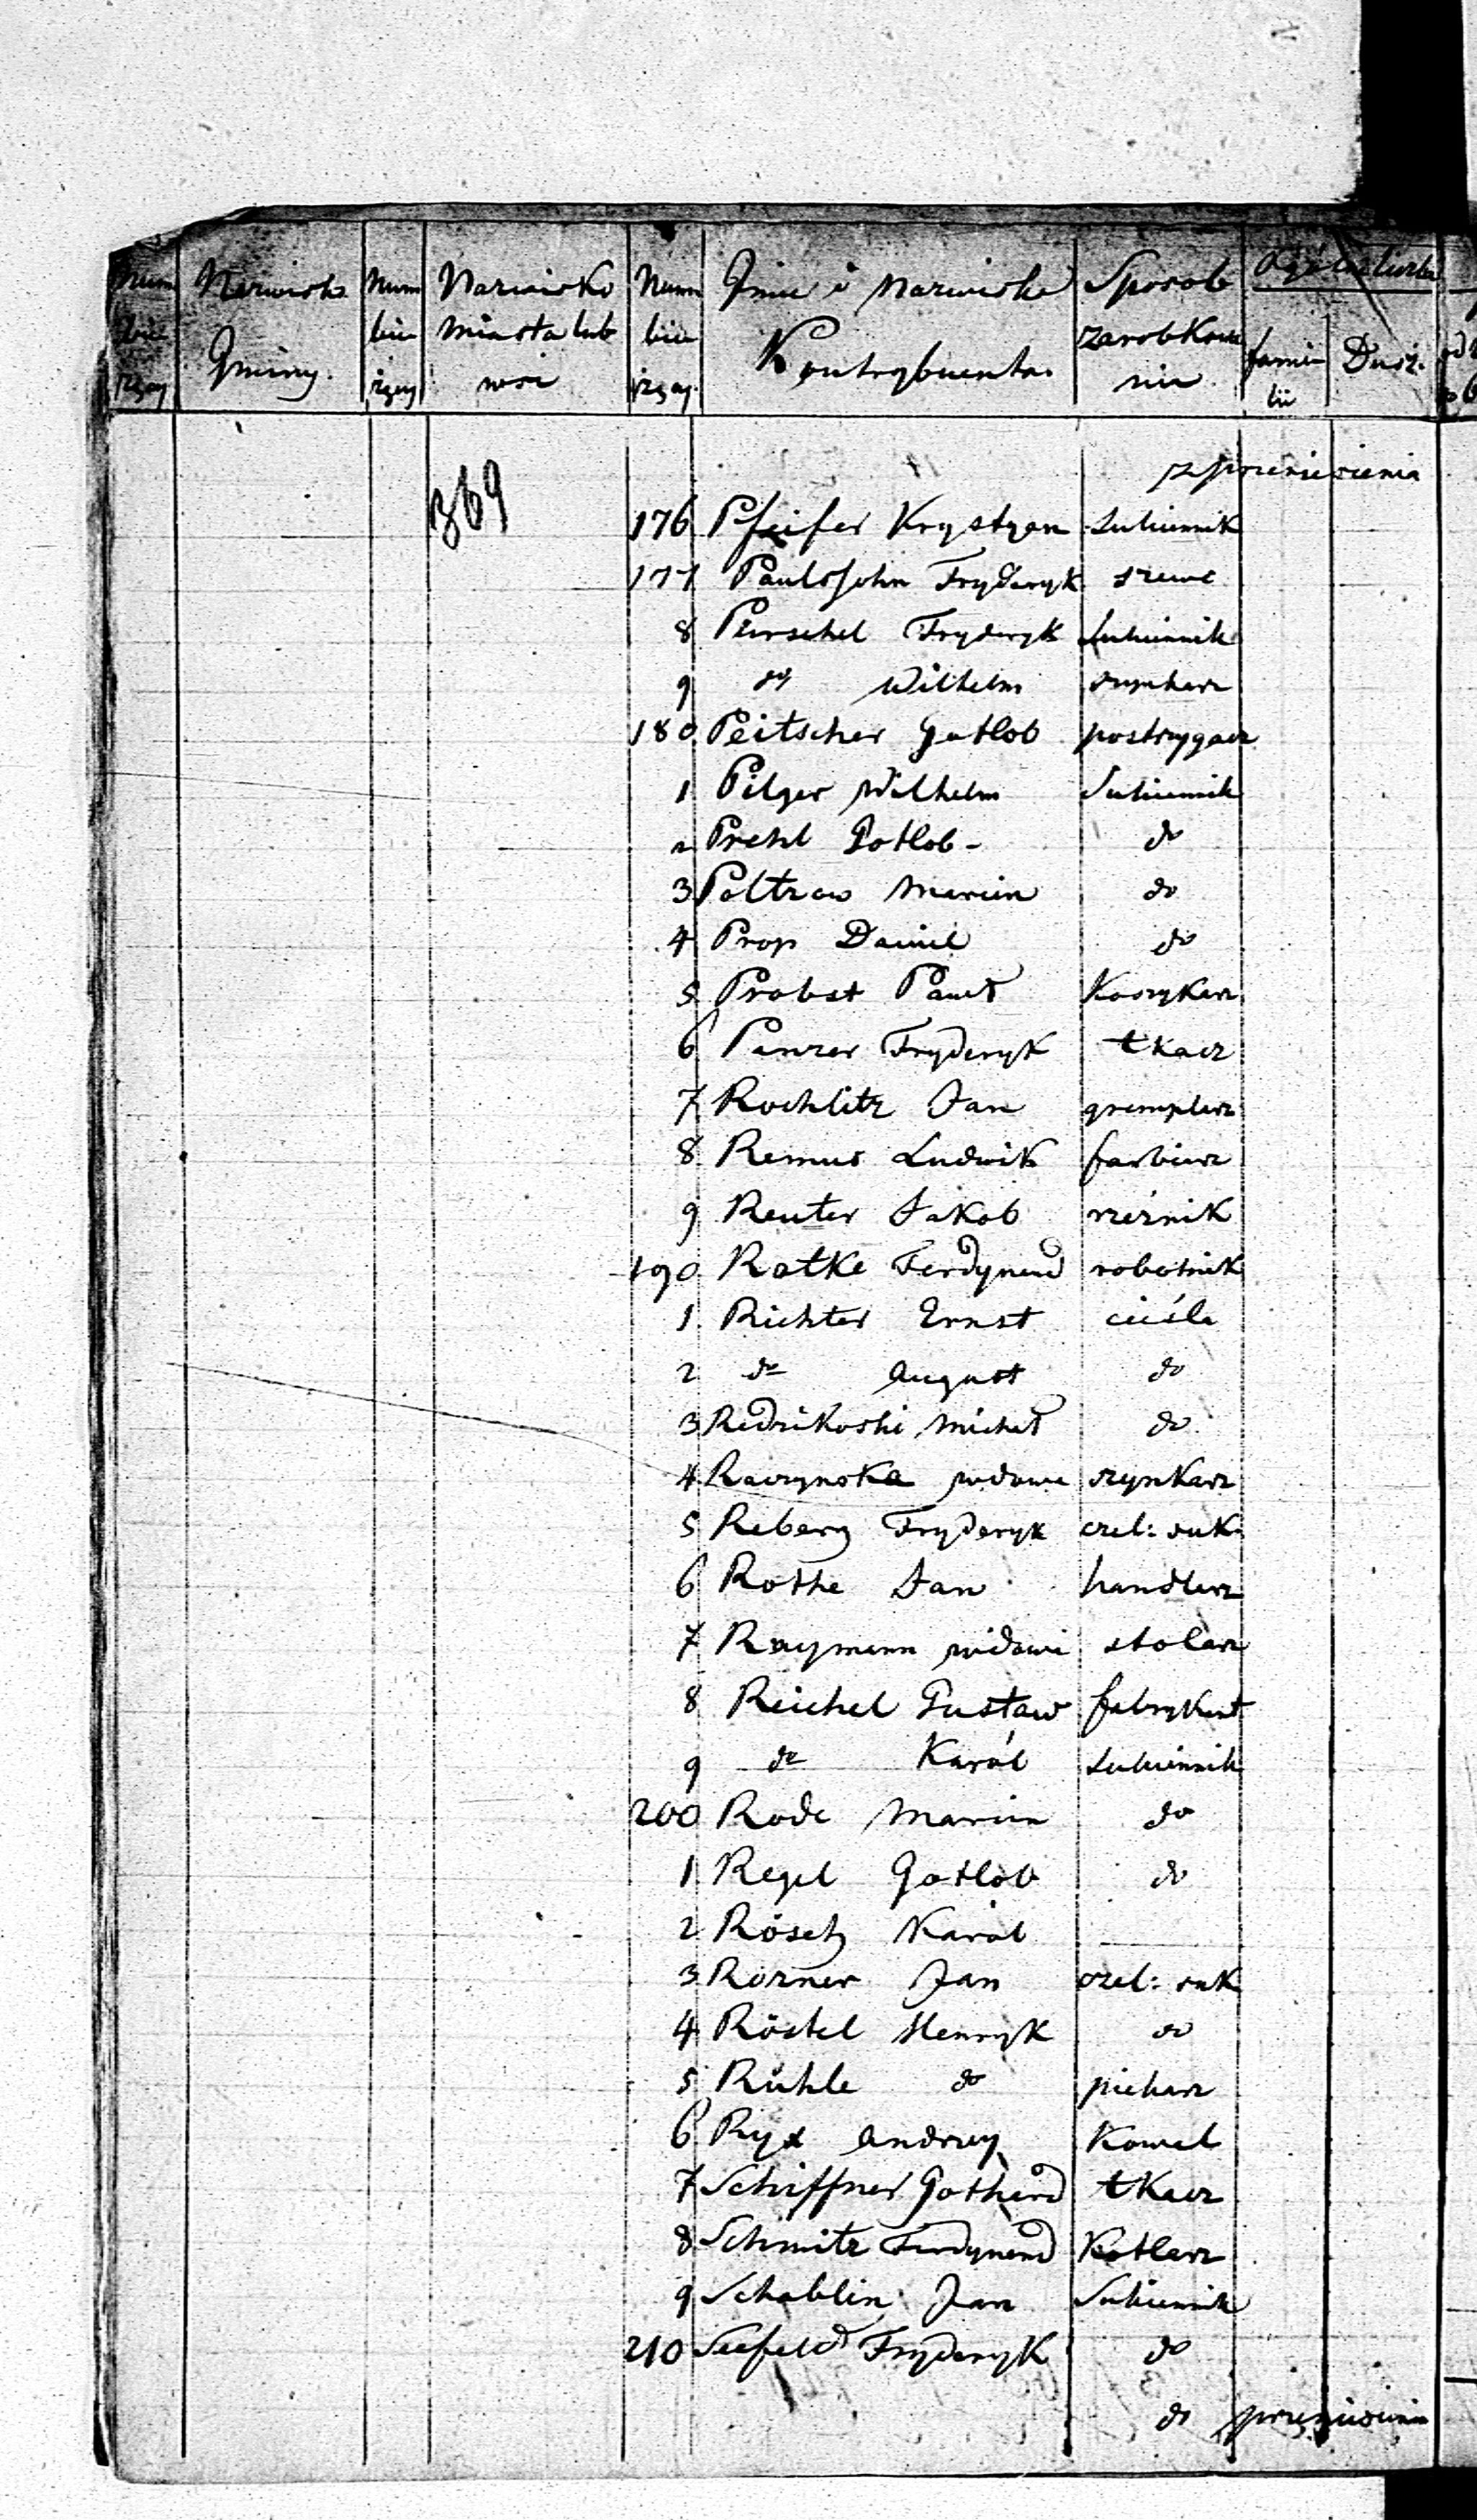 Num bie rzący | Nazwisko Gminy. | Num bie rzący | Nazwisko Miasta lub wsi | Num bie rzący | Imie i Nazwisko Kontrybuenta. | Sposob zarobkowa nia | Ogół liczba | familii | Dusz.
z przeniesienia
369
176 Pfeifer Krystyan Sukiennik
177 Paulssohn Fryderyk szewc
8 Purschel Fryderyk Sukiennik
9 do Wilhelm szynkarz
180 Peitscher Gotlob postrzygacz
1 Pilger Wilhelm Sukiennik
2 Prehl Gotlob - do
3 Poltrow Marcin do
4 Prop Daniel do
5 Probst Paweł Koszykarz
6 Panzer Fryderyk tkacz
7 Rochlitz Jan gremplarz
8 Remus Ludwik farbierz
9 Reuter Jakob rzeźnik
190 Ratke Ferdynand robotnik
1 Richter Ernst cieśla
2 do August do
3 Redzikoski Michał do
4 Raczynska wdowa szynkarz
5 Reberg Fryderyk czel: suk
6 Rothe Jan handlarz
7 Raymann widowi stolarz
8 Reichel Gustaw fabrykant
9 do Karól Sukiennik
200 Rode Marcin do
1 Regel Gotlob do
2 Rösch Karól
3 Rorzner Jan czel: suk
4 Röstel Henryk do
5 Rühle do piekarz
6 Ryx Andrzey Kowal
7 Schiffner Gothard tkacz
8 Schmitz Ferdynand Kotlarz
9 Schablin Jan Sukiennik
210 Seefeld Fryderyk do
do przeniesienia